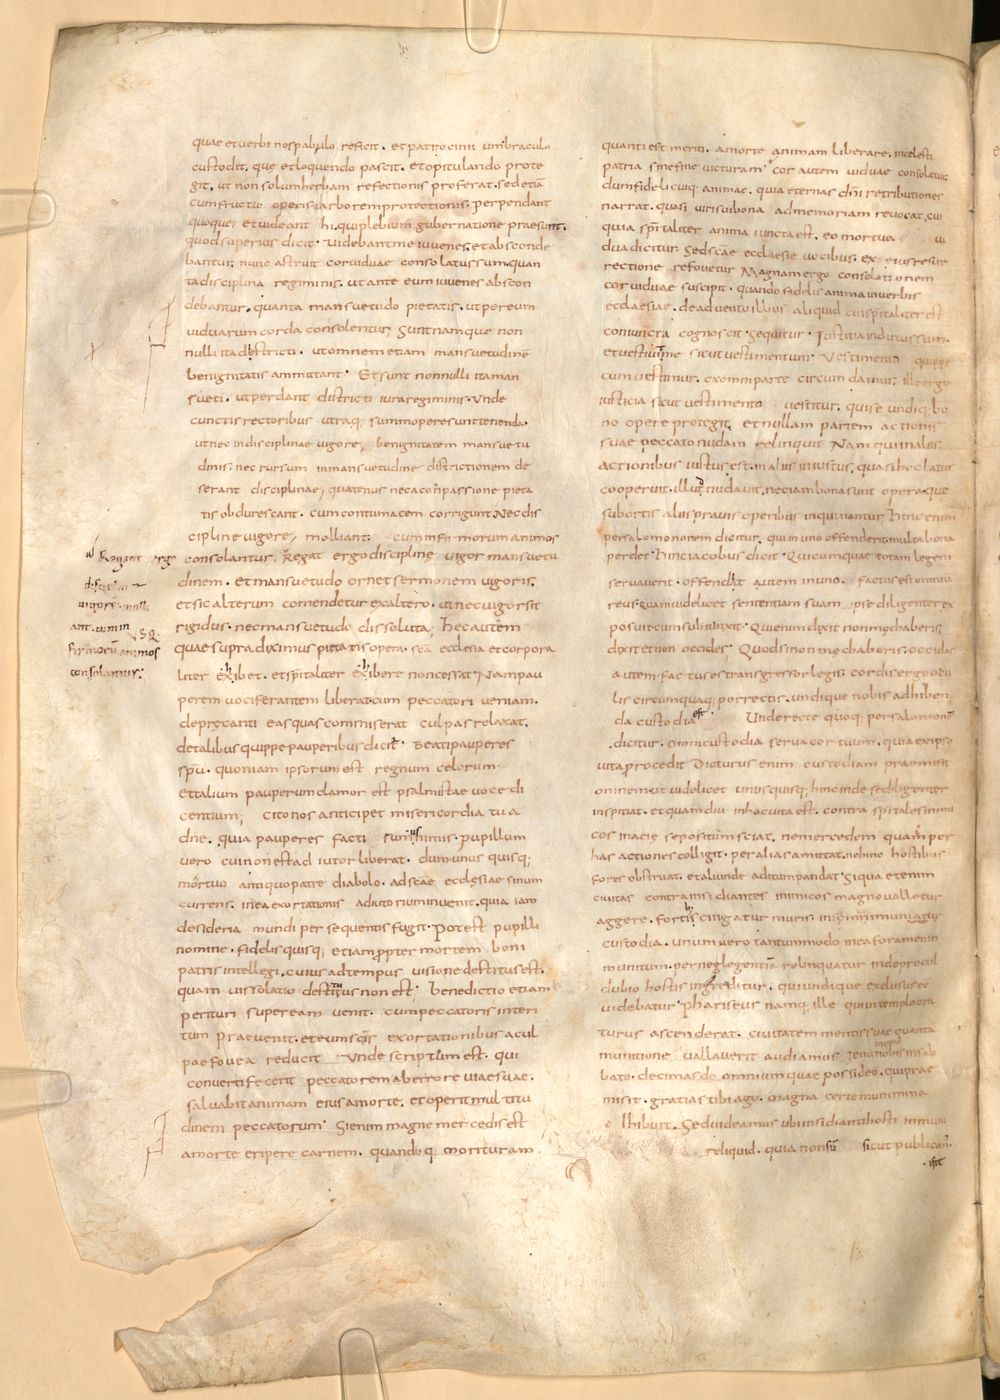 quae et verbi nos pabulo reficit. et patrocinii umbraculo
custodit, que et loquendo pascit. et opitulando prote
git, ut non solum herbam refectionis proferat. sed etiā
cum fructu operis. arborem protectionis; perpendant
quoque, et videant hi. qui plebium gubernatione praesunt.
quod superius dicit. videbant me iuvenes. et absconde
bantur. nunc astruit cor viduae consolatus sum. quan
ta disciplina regiminis. ut ante eum iuvenes abscon
debantur. quanta mansuetudo pietatis. ut per eum
viduarum corda consolentur; Sunt namque non
nulli ita districti. ut omnem etiam mansuetudine
benignitatis ammittant. Et sunt nonnulli ita man
sueti. ut perdant districti iura regiminis. Unde
cunctis rectoribus utraq; summopere sunt tenenda.
ut nec in disciplinae vigore, benignitatem mansuetu
dinis. nec rursum in mansuetudine districtionem de
serant disciplinae, quatenus nec a cōpassione pieta
tis obdurescant. cum contumacem corrigunt. Nec dis
cipline vigore, molliant; cum infirmorum animos
consolantur, Regat ergo discipline vigor mansuetu
dinem. et mansuetudo ornet sermonem vigoris.
et sic alterum comendetur ex altero. ut nec vigor sit
rigidus. nec mansuetudo dissoluta; Hec autem
quae supra diximus pietatis opera. scā ecclesia et corpora
liter exhibet. et spitaliter exhibere non cessat; Nam pau
perem vociferantem liberat cum peccatori veniam.
deprecanti eas quas commiserat culpas relaxat.
de talibus quippe pauperibus dicit. Beati pauperes
spū. quoniam ipsorum est regnum celorum.
et talium pauperum clamor est psalmistae voce di
centium; cito nos anticipet misericordia tua
dne. quia pauperes facti sumus nimis. pupillum
vero cui non est adiutor liberat. dum unus quisq;
mortuo antiquo patre diabolo. ad scāe ecclesiae sinum
currens. in ea exortationis adiutorium invenit. quia iam
desideria mundi persequentis fugit. Potest pupilli
nomine. fidelis quisq; etiam ppter mortem boni
patris intellegi. cuius ad tempus visione destitus est.
quam vis solatio destitutus non est; benedictio etiam
perituri super eam venit. cum peccatoris interi
tum praevenit. et eum scīs exortationibus a cul
pae fovea reducit Unde scriptum est. qui
converti fecerit peccatorem ab errore viae suae.
salvabit animam eius a morte. et operit multitu
dinem peccatorum; Si enim magne mercedis est
a morte eripere carnem. quandoq; morituram
Regant ergo
discipline
vigore. molli
ant. cum in
firmorū animos
consolantur;
quanti est meriti. a morte animam liberare. in celesti
patria sine fine victuram; cor autem viduae consolatur
dum fideli cuiq; animae. quia eternas dnī retributiones
narrat. quasi viri sui bona ad memoriam revocat, cui
quia spītaliter anima iuncta est. eo mortuo. vi
dua dicitur. Sed scāe ecclaesie vocibus. ex eius resur
rectione refovetur Magnam ergo consolationem
cor viduae suscipit. quando fidelis anima in verbis
ecclaesiae. de adventu illius aliquid cui spitaliter est
coniuncta cognoscit. Sequitur. Iustitia indutus sum.
et vestivit me sicut vestimentum. Vestimento quippe
cum vestimur. ex omni parte circumdamur. ille ergo
iusticia sicut vestimento vestitur. qui se undiq; bo
no opere protegit. et nullam partem actionis
suae peccato nudam relinquit Nam qui in aliis
actionibus iustus est. in aliis iniustus, quasi hoc latus
cooperuit. illud nudavit, nec iam bona sunt opera. que
subortis aliis pravis operibus inquinantur Hinc enim
per salomonem dicitur. qui in uno offenderit. multa bona
perdet. Hinc iacobus dicit. Quicumquae totam legem
servaverit. offendat autem in uno. factus est omniū
reus. quam videlicet sententiam suam ipse diligenter ex
posuit cum subiunxit. Qui enim dixit non mechaberis;
dixit et non occides; Quod si non mechaberis. occidas
autem. factus es transgressor legis. cordis ergo ocu
lis circumquaq; porrectis. undique nobis adhiben
da custodia est Unde recte quoq; per salomonē
dicitur. Omni custodia serva cor tuum. quia ex ipso
vita procedit Dicturus enim custodiam praemisit
omnem. ut videlicet unus quisq; hinc inde se diligenter
inspitiat. et quamdiu in hac vita est. contra spitales inimi
cos in acie se positum sciat. ne mercedem quam per
has actiones colligit. per alias amittat. ne hinc hostibus
fores obstruat. et aliunde aditum pandat. Si qua etenim
civitas contra insidiantes inimicos magno valletur
aggere. fortibus cingatur muris. insomni muniatur
custodia. Unum vero tantummodo in ea foramen in
munitum. per neglegentiā relinquatur inde procul
dubio hostis ingreditur. qui undique exclusus ee
videbatur. Phariseus namq; ille qui in templo ora
turus ascenderat. civitatem mentis suae quanta
munitione vallaverit audiamus Ieiuno bis in sab
bato. decimas do omnium quae possideo. qui prae
misit. gratias tibi ago. magna certe munimine
hibuit. Sed videamus ubi insidianti hosti inmuni
reliquid. quia non sū sicut publican.
iste